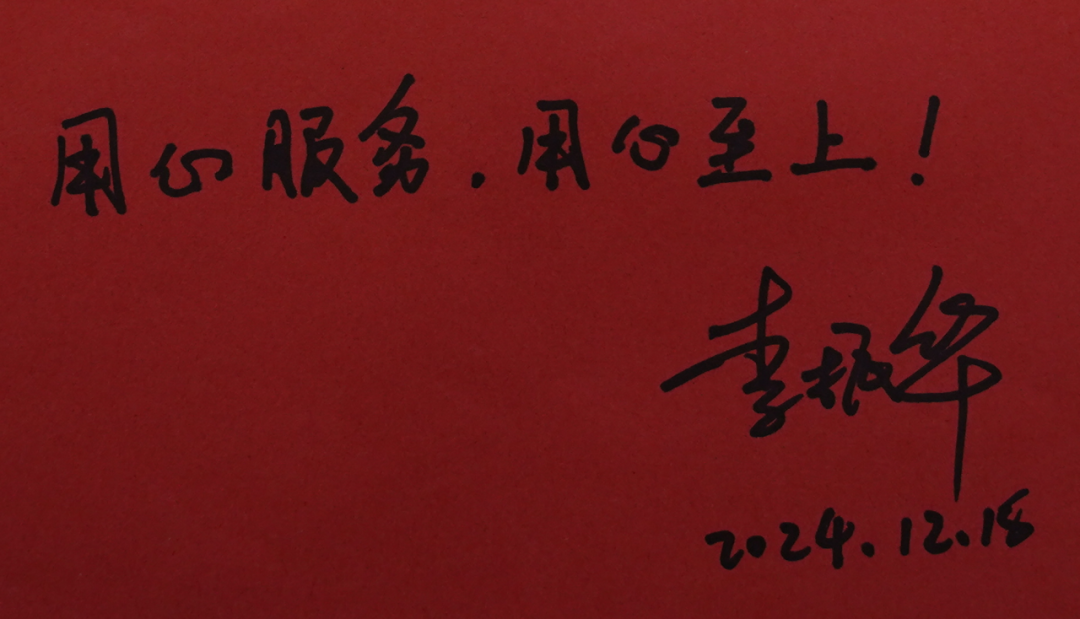 用心服务.用心至上!
李振华
2024.12.18